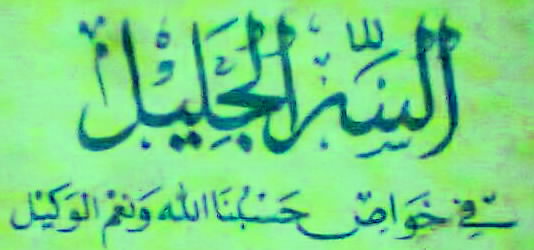 السر الجليل
في خواص حسبنا الله ونعم الوكيل